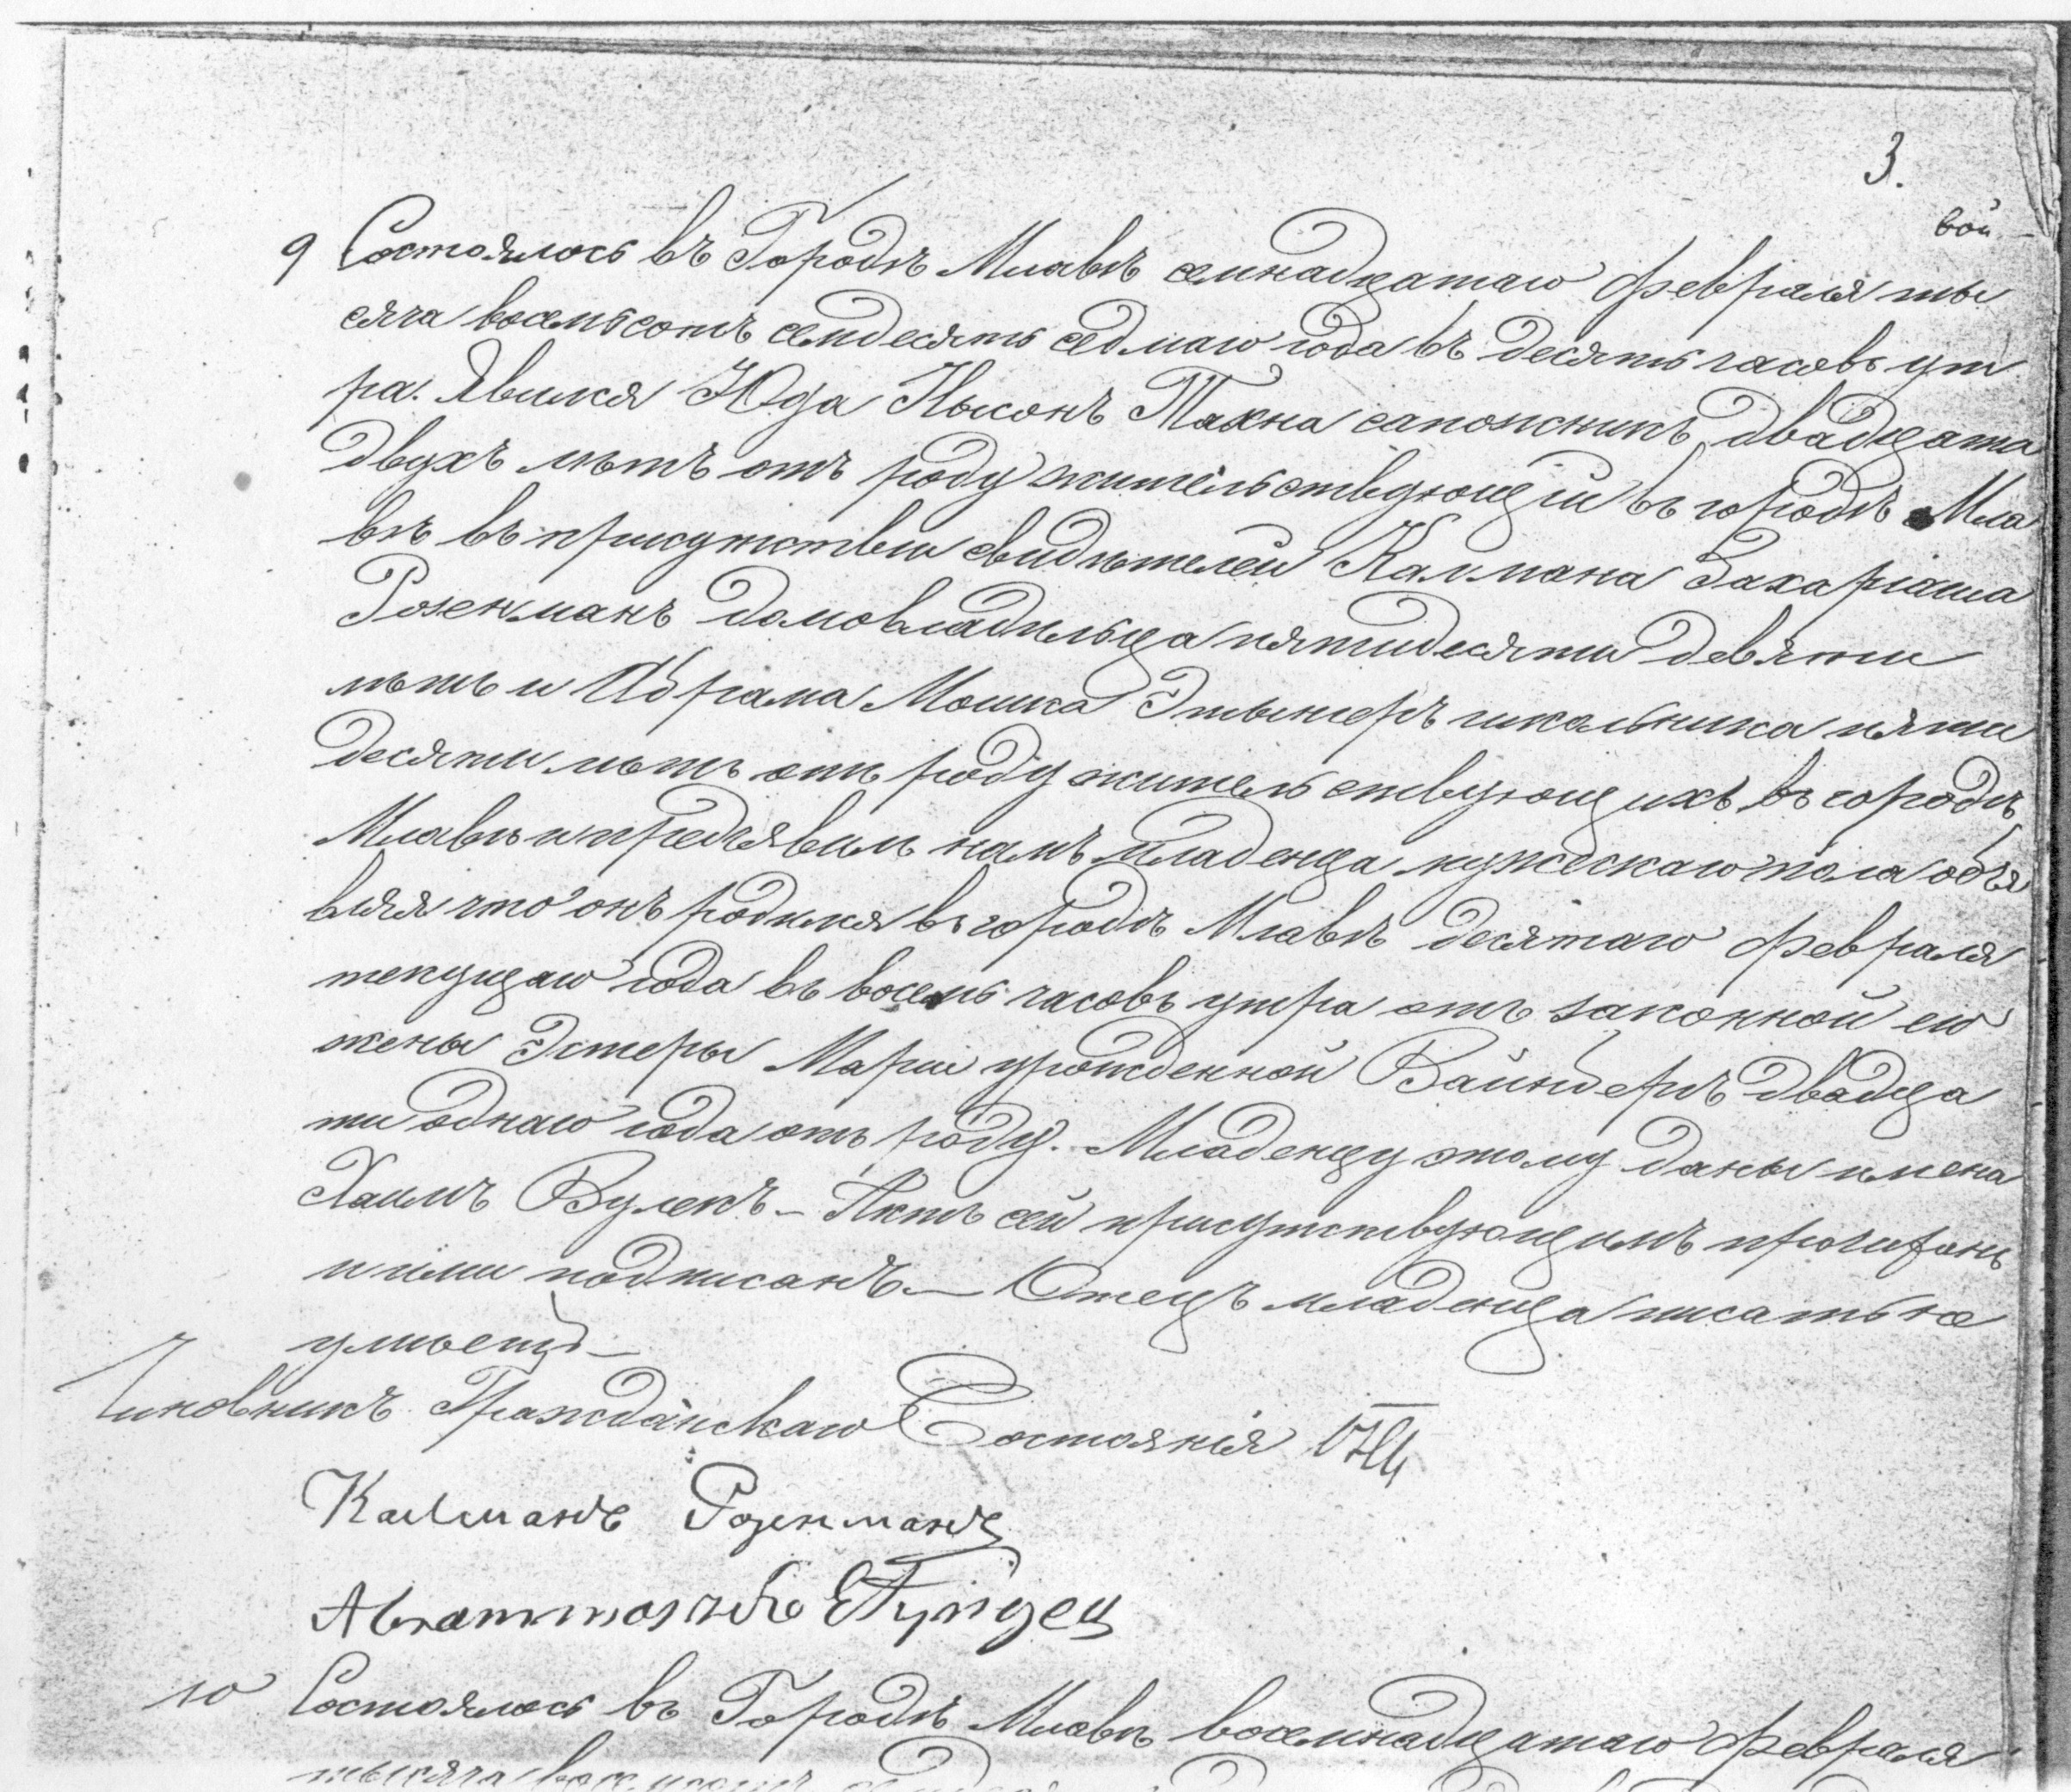 3.
вой
9 Состоялось въ Городѣ Млавѣ семнадцатаго февраля ты
сяча восемьсотъ семдесять седмаго года въ десять часовъ ут
ра. Явился Юда Нысонъ Тахна сапожникъ, двадцати
двухъ лѣтъ отъ роду жительствующій въ городѣ Мла
вѣ въ присутствіи свидѣтелей Калмана Захаріаша
Розенманъ домовладѣльца пятидесяти девяти
лѣтъ и Абрама Мошка Этынгеръ школьника пяти
десяти лѣтъ отъ роду жительствующихъ въ городѣ
Млавѣ и предъявилъ намъ младенца мужескаго пола объя
вляя что онъ родился въ городѣ Млавѣ десятаго февраля
текущаго года въ восемь часовъ утра отъ законной его
жены Эстеры Маріи урожденной Вайнбергъ двадца
ти однаго года отъ роду. Младенцу этому даны имена
Хаимъ Вулекъ – Актъ сей присутствующимъ прочитанъ
и ими подписанъ – Отецъ младенца писать не
умѣетъ –
Чиновникъ Гражданскаго Состоянія
Калманъ Розенманъ
10 Состоялось въ Городѣ Млавѣ восемнадцатаго февраля
тысяча восемьсотъ